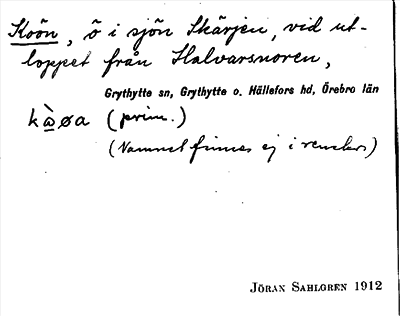 Koön, ö i sjön Skärjen, vid ut-
loppet från Halvarsnoren,
Grythytte sn, Grythytte o. Hällefors hd, Örebro län
kὼøa (prim.)
(Namnet finnes ej i renskr.)
JÖRAN SAHLGREN 1912